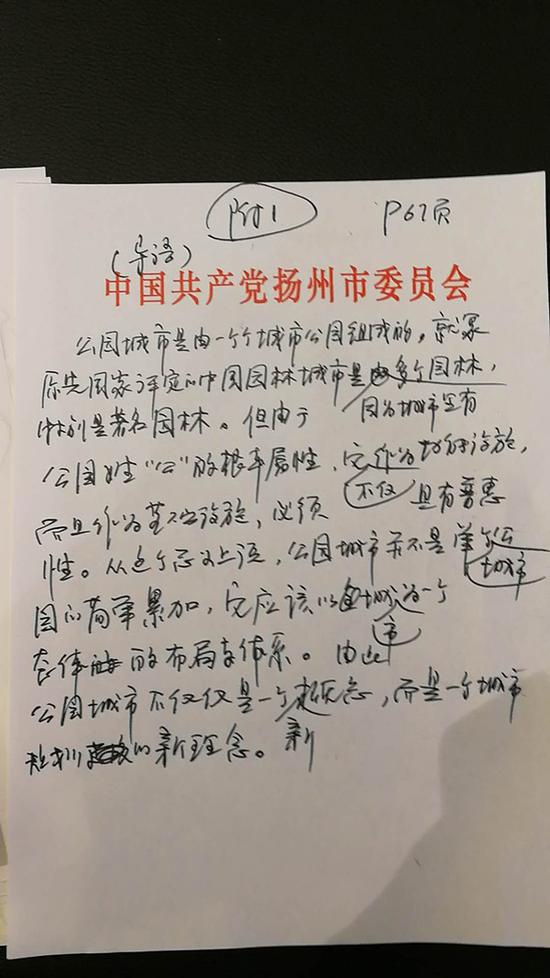 附1 P67页
(导语)
中国共产党扬州市委员会
公园城市是由一个个城市公园组成的，就象
原先国家评定的中国园林城市是多个园林，
特别是著名园林。但由于 因为城市里有
公园姓“公”的根本属性，它作为城市设施，
而且作为基本设施，必须 不仅 具有普惠
性。从这个意义上说，公园城市并不是单个公
城市
园的简单累加，它应该以全城为一个
市
整体的布局与体系。由此
公园城市不仅仅是一个概念，而是一个城市
规划的新理念。新